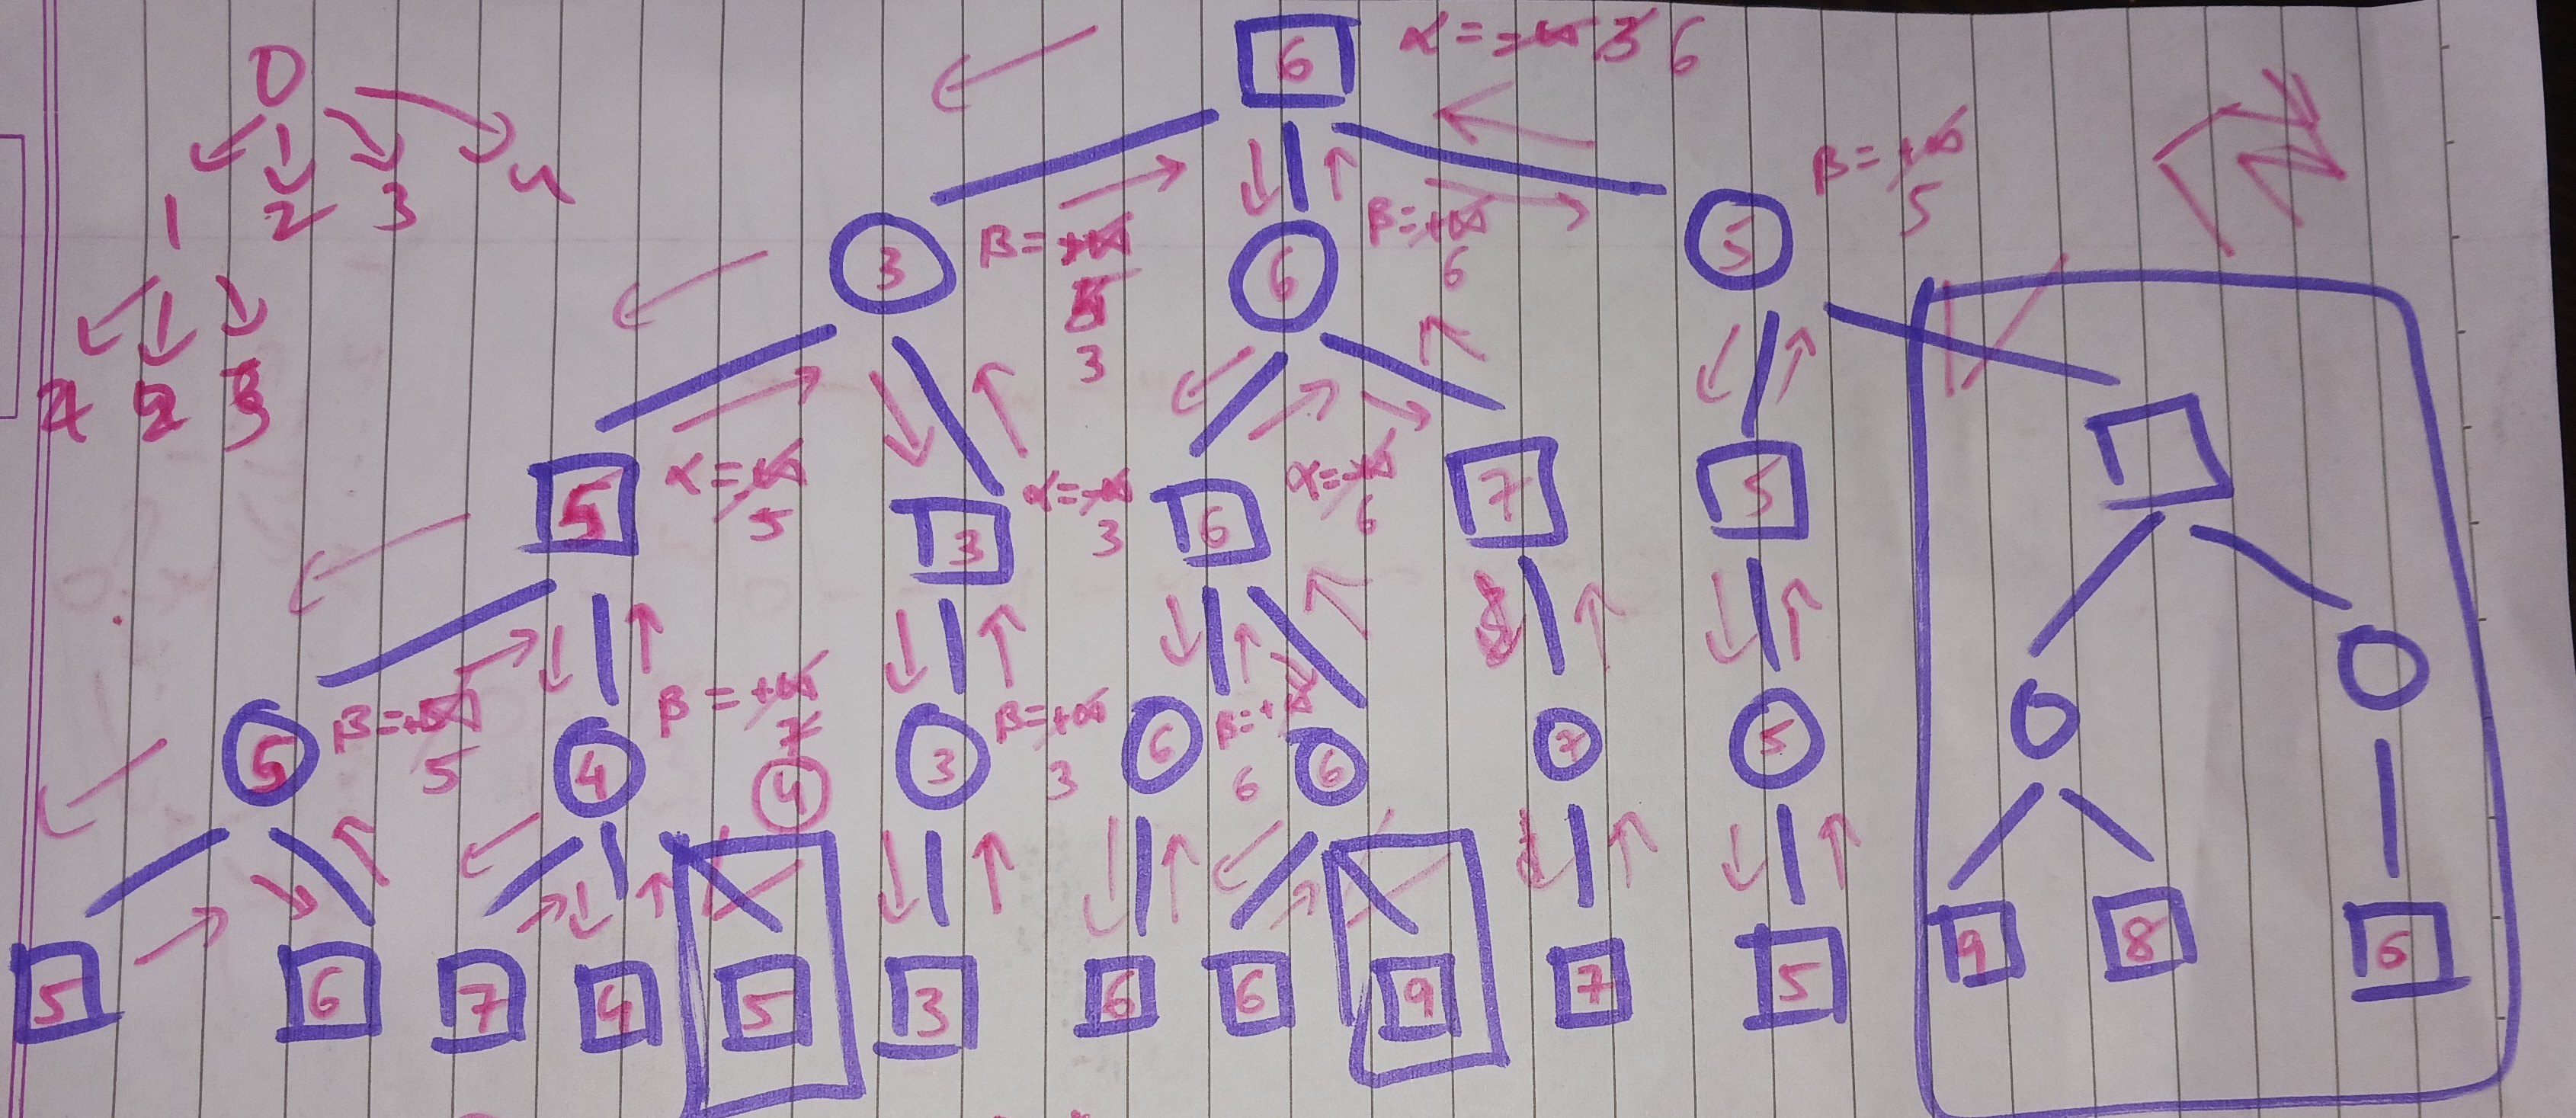 0
1 2 3 4
6 α = -∞ 3 6
3 β = +∞ 5 3
6 β = +∞ 6
5 β = +∞ 5
5 α = -∞ 5
3 α = -∞ 3
6 α = -∞ 6
7
5
5 β = +∞ 5
4 β = +∞ 7 4
3 β = +∞ 3
6 β = +∞ 6
6
7
5
5 6 7 4 5 3 6 6 9 7 5 9 8 6